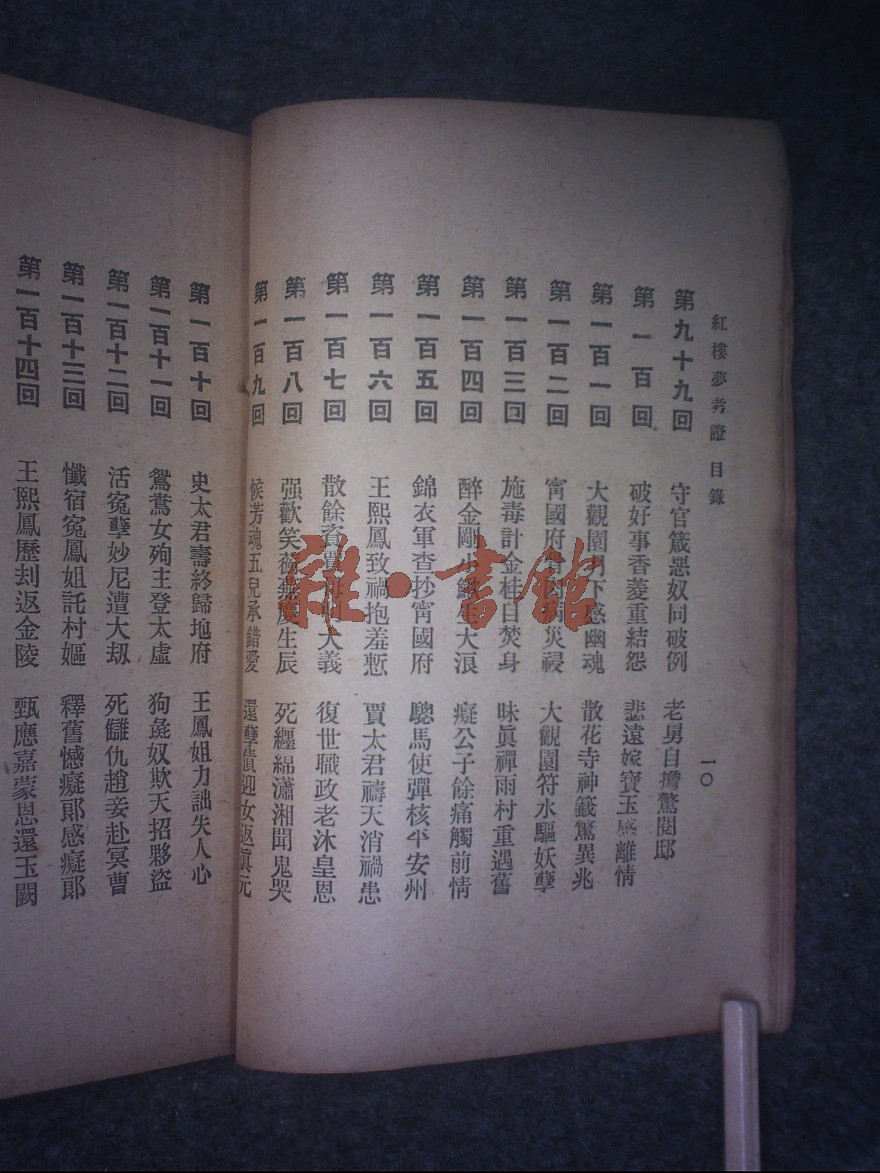 紅樓夢考證 目錄 一〇
第九十九回 守官箴惡奴同破例 老舅自擔驚閱邸
第一百回 破好事香菱重結怨 悲遠嫁寶玉感離情
第一百一回 大觀園月下感幽魂 散花寺神籤驚異兆
第一百二回 甯國府骨肉病災祲 大觀園符水驅妖孽
第一百三回 施毒計金桂自焚身 昧眞禪雨村重遇舊
第一百四回 醉金剛小鰍生大浪 癡公子餘痛觸前情
第一百五回 錦衣軍查抄甯國府 驄馬使彈核平安州
第一百六回 王熙鳳致禍抱羞慙 賈太君禱天消禍患
第一百七回 散餘資賈母明大義 復世職政老沐皇恩
第一百八回 强歡笑蘅蕪慶生辰 死纏綿瀟湘聞鬼哭
第一百九回 候芳魂五兒承錯愛 還孽債迎女返眞元
第一百十回 史太君壽終歸地府 王鳳姐力詘失人心
第一百十一回 鴛鴦女殉主登太虛 狗彘奴欺天招夥盜
第一百十二回 活冤孽妙尼遭大刼 死讎仇趙妾赴冥曹
第一百十三回 懺宿冤鳳姐託村嫗 釋舊憾癡郞感癡郞
第一百十四回 王熙鳳歷刦返金陵 甄應嘉蒙恩還玉闕
雜·書館